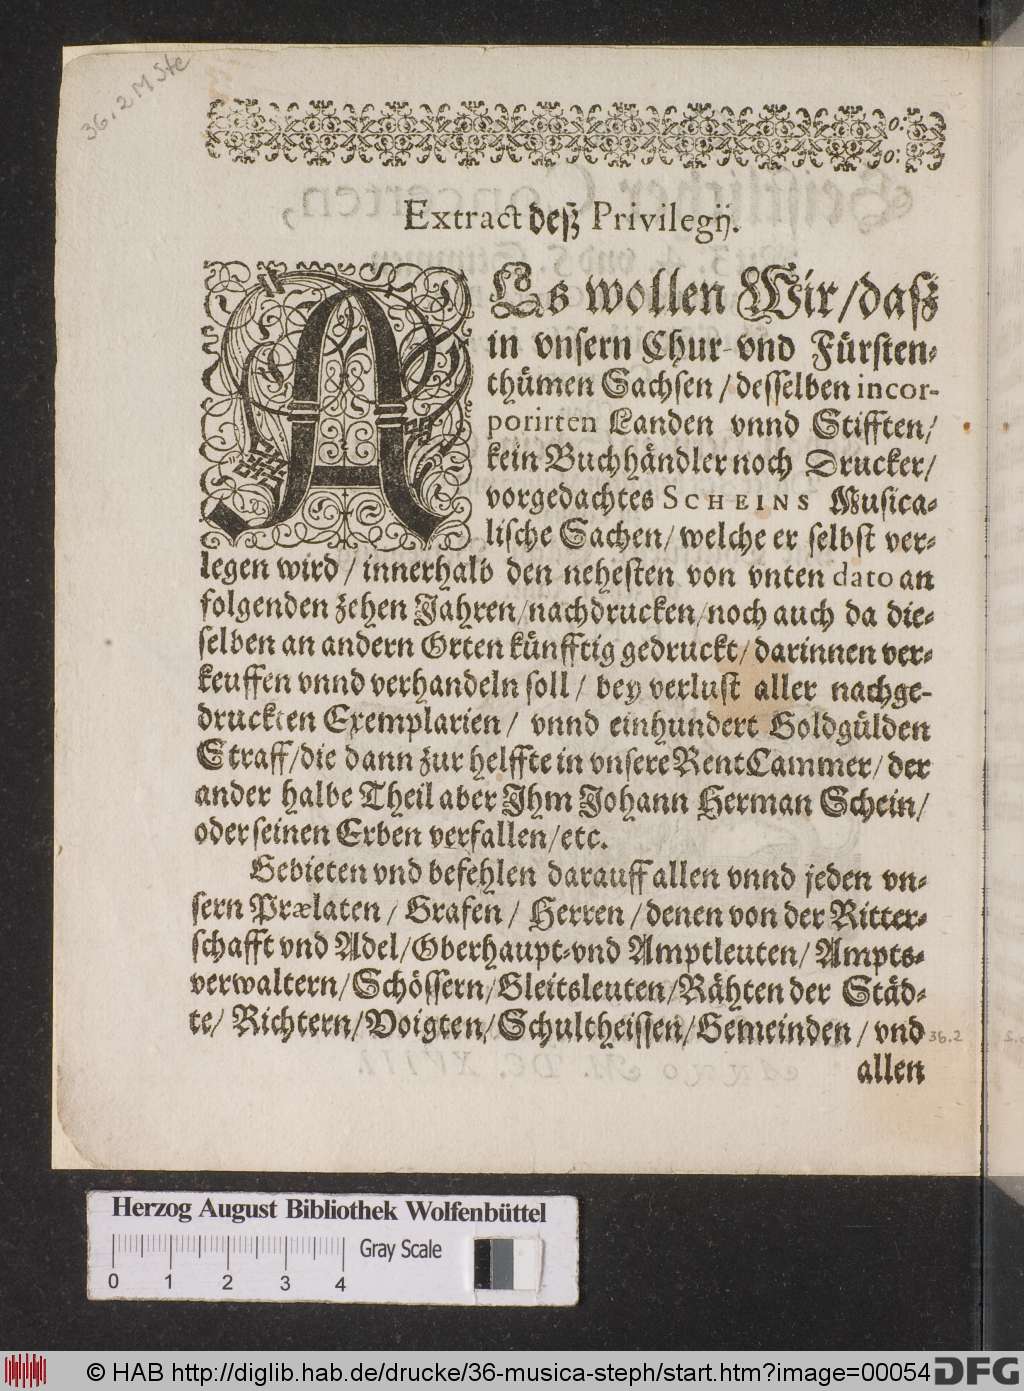 36.2 M Ste
Extract deß Privilegij.
ALs wollen Wir/daß
in vnsern Chur-vnd Fürsten-
thümen Sachsen/desselben incor-
porirten Landen vnnd Stifften/
kein Buchhändler noch Drucker/
vorgedachtes SCHEINS Musica-
lische Sachen/welche er selbst ver-
legen wird/innerhalb den nehesten von vnten dato an
folgenden zehen Jahren/nachdrucken/noch auch da die-
selben an andern Orten künfftig gedruckt/darinnen ver-
keuffen vnnd verhandeln soll/bey verlust aller nachge-
druckten Exemplarien/vnnd einhundert Goldgülden
Straff/die dann zur helffte in vnsere RentCammer/der
ander halbe Theil aber Ihm Johann Herman Schein/
oder seinen Erben verfallen/etc.
Gebieten vnd befehlen darauff allen vnnd jeden vn-
sern Prælaten/Grafen/Herren/denen von der Ritter-
schafft vnd Adel/Oberhaupt-vnd Amptleuten/Ampts-
verwaltern/Schössern/Gleitsleuten/Rähten der Städ-
te/Richtern/Voigten/Schultheissen/Gemeinden/vnd
36.2
allen
Herzog August Bibliothek Wolfenbüttel
Gray Scale
0 1 2 3 4
© HAB http://diglib.hab.de/drucke/36-musica-steph/start.htm?image=00054
DFG